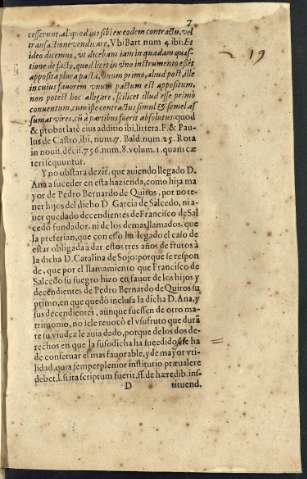 7
19
cesserunt, aliquod ius sibi ex eodem contractu, vel
transactione vendicare, Vbi Bart. num. 4. ibi: Et
ideo dicemus, vt dicebam iam in quadam quæs-
tione de facto, quod licet in vno instrumento esset
apposita plura pacta, vnum primo, aliud post, ille
in cuius fauorem vnum pactum est appositum,
non potest hoc allegare, scilicet illud esse primo
conuentum, cum iste contractus simul & semel as
sumat vires, cū à partibus fuerit absolutus. quod
& probat late eius additio ibi littera. F. & Pau-
lus de Castro, ibi, num. 7. Bald. num. 25. Rota
in nouis. decis. 756. num. 8. volum. 1. quam cæ
teri sequuntur.
Y no obstarà dezir, que auiendo llegado D.
Ana a suceder en esta hazienda, como hija ma
yor de Pedro Bernardo de Quiros, por no te-
ner hijos del dicho D. Garcia de Salcedo, ni a-
uer quedado decendientes de Francisco de Sal
cedo fundador, ni de los demas llamados, que
la preferian, que con esso ha llegado el caso de
estar obligada à dar estos tres años de frutos à
la dicha D. Catalina de Sojo: porque se respon
de, que por el llamamiento que Francisco de
Salcedo su suegro hizo en fauor de los hijos y
decendientes de Pedro Bernardo de Quiros su
primo, en que quedò inclusa la dicha D. Ana, y
sus decendientes, aunque fuessen de otro ma-
trimonio, no le reuocò el vsufruto que durā
te su viudez le auia dado, porque de los dos de-
rechos en que la susodicha ha sucedido, se ha
de conseruar el mas fauorable, y de mayor vti-
lidad, quia semper plenior institutio præualere
debet. l. si ita scriptum fuerit, ff. de hæredib. ins-
D
tituend.